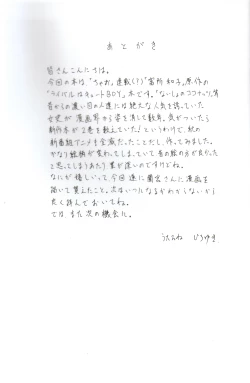 あとがき
皆さんこんにちは。
今回の本は、「ちゃお」連載(?)富所和子。原作の
「ライバルはキュートBOY」本です。「ないしょのココナッツ」等
昔からの濃い回の人達には絶大な人気を誇っていた
女史が漫画界から姿を消して数年。気がついたら
新作本が2巻を数えていた!というわけで、秋の
新番組アニメを全滅だったことだし、作ってみました。
かなり絵柄が変わってしまっていて昔の絵の方が良かった
と思ってしまうあたり業が深いのですけどね。
なにが嬉しいって、今回遂に さんに漫画を
描いて貰えたこと。次はいつになるかわからないが
良く読んでおいてね。
では、また次の機会に。
うたたね ひろゆき